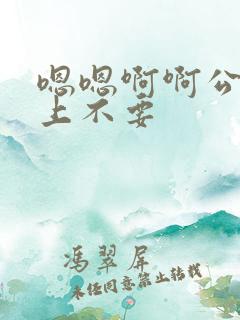 嗯嗯啊啊公
上不要
冯翠屏
未经同意禁止转载